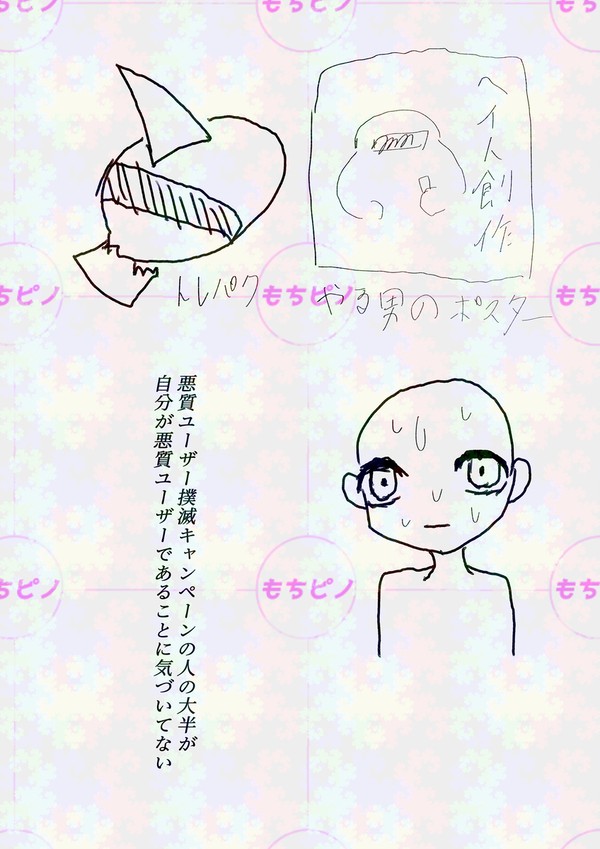 ヘイト創作
トレパク
やる男のポスター
悪質ユーザー撲滅キャンペーンの人の大半が
自分が悪質ユーザーであることに気づいてない
もちピノ
もちピノ
もちピノ
もちピノ
もちピノ
もちピノ
もちピノ
もちピノ
もちピノ